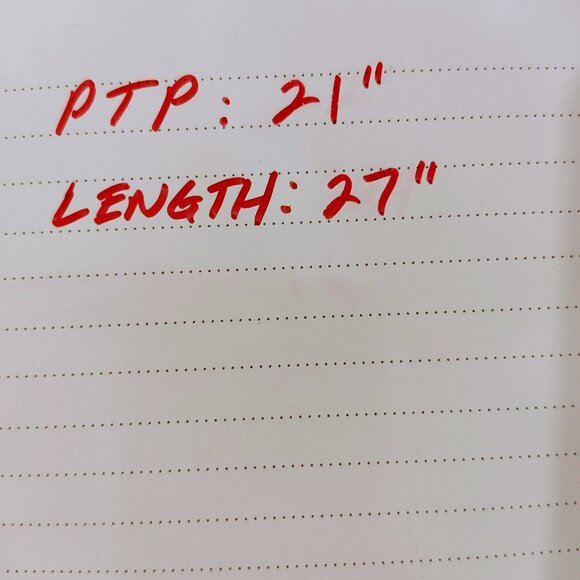 PTP: 21"
LENGTH: 27"